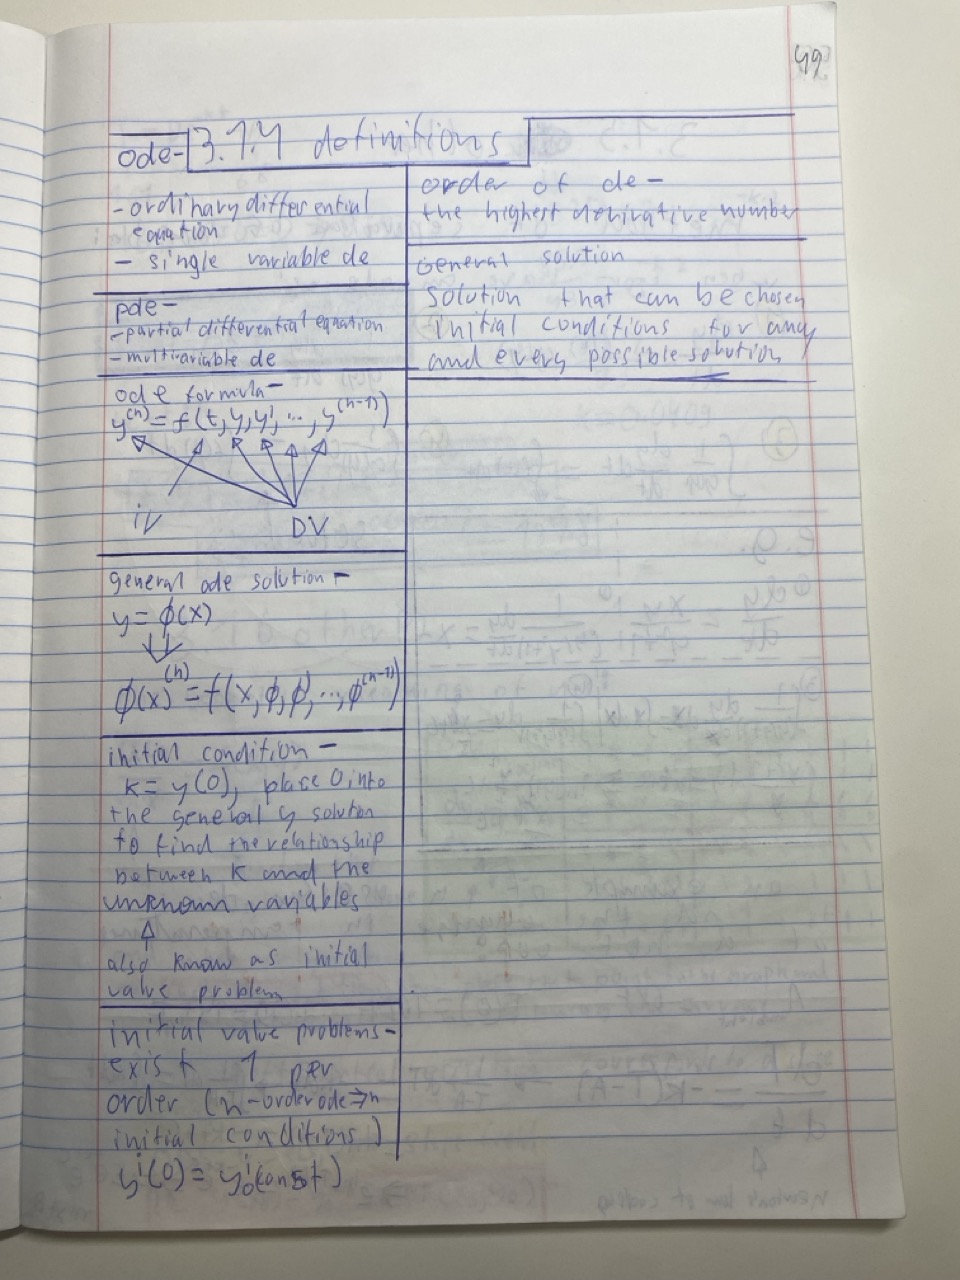 49
3.1.4 definitions
ode-
- ordinary differential
equation
- single variable de
pde-
- partial differential equation
- multivariable de
ode formula-
y^(n) = f(t, y, y', ..., y^(n-1))
iv DV
general ode solution -
y = φ(x)
φ(x)^(n) = f(x, φ, φ', ..., φ^(n-1))
initial condition -
k = y(0), place 0 into
the general y solution
to find the relationship
between k and the
unknown variables
also know as initial
value problem
initial value problems-
exist 1 per
order (n-order ode ⇒ n
initial conditions)
y^i(0) = y_0^i const)
order of de -
the highest derivative number
General solution
solution that can be chosen
initial conditions for any
and every possible solution